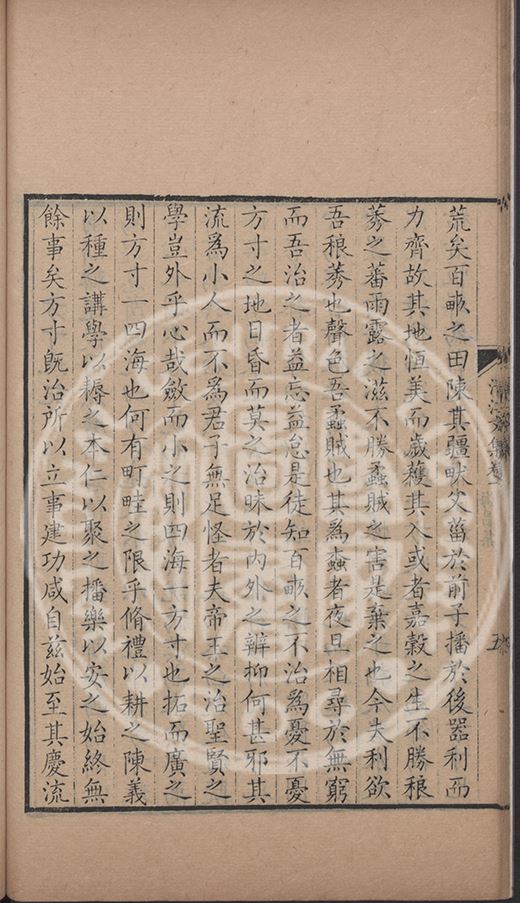 荒矣百畝之田陳其疆畎父菑於前子播於後器利而
力齊故其地恆美而歲穫其入或者嘉穀之生不勝稂
莠之蕃雨露之滋不勝蟊賊之害是棄之也今夫利欲
吾稂莠也聲色吾蟊賊也其為蠹者夜旦相尋於無窮
而吾治之者益忘益怠是徒知百畝之不治為憂不憂
方寸之地日昏而莫之治昧於內外之辨抑何甚邪其
流爲小人而不爲君子無足怪者夫帝王之治聖賢之
學豈外乎心哉斂而小之則四海一方寸也拓而廣之
則方寸一四海也何有町畦之限乎脩禮以耕之陳義
以種之講學以耨之本仁以聚之播樂以安之始終無
餘事矣方寸旣治所以立事建功咸自兹始至其慶流
集卷
五